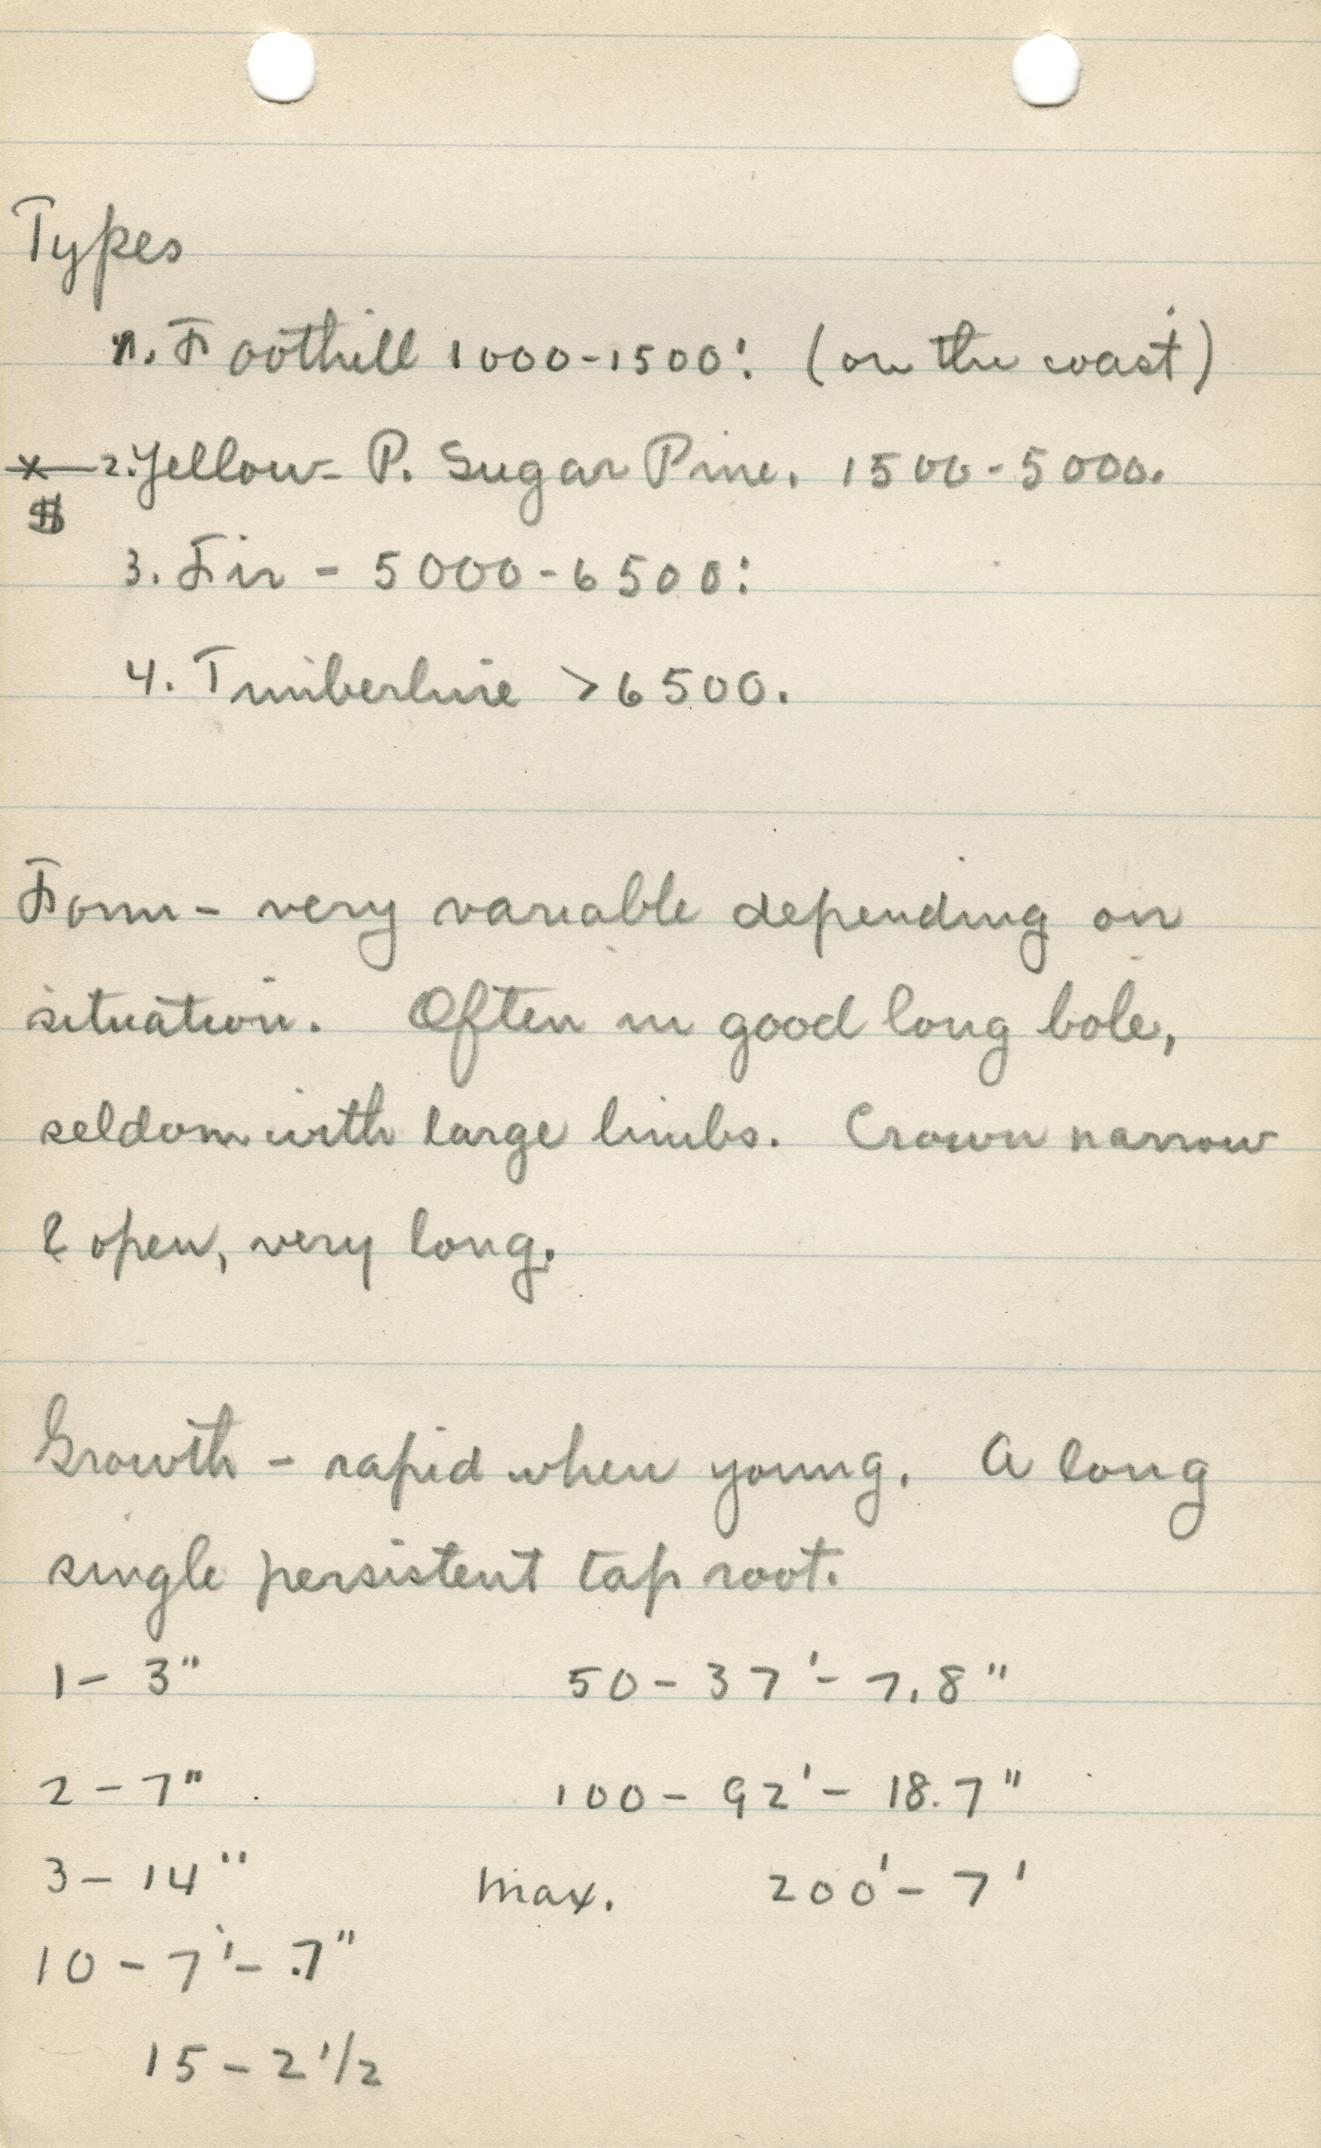 Types
1. Foothill 1000-1500'. (on the coast)
x— 2. Yellow- P. Sugar Pine. 1500-5000.
$
3. Fir - 5000-6500'.
4. Timberline >6500.
Form - very variable depending on
situation. Often in good long bole,
seldom with large limbs. Crown narrow
& open, very long.
Growth - rapid when young. A long
single persistent tap root.
1- 3" 50- 37'- 7.8"
2 - 7" 100- 92'- 18.7"
3- 14" max. 200'- 7'
10 - 7'- .7"
15 - 2 1/2